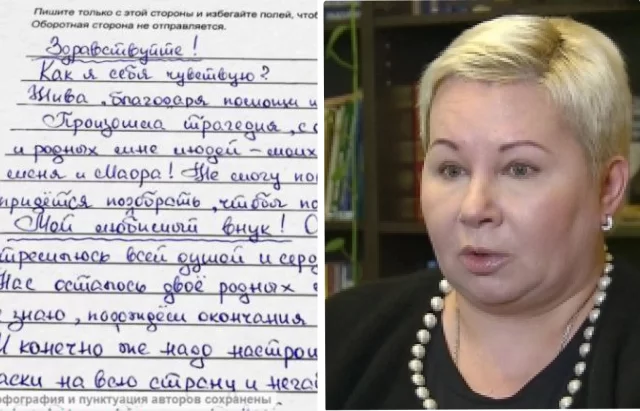 Пишите только с этой стороны и избегайте полей, чтоб
Оборотная сторона не отправляется.
Здравствуйте!
Как я себя чувствую?
Жива, благодаря помощи и
Произошла трагедия, с
и родных мне людей - моих
меня и Маора! Не могу по
придётся подобрать, чтобы по
Мой любимый внук! О
тремлюсь всей душой и серд
Нас осталось двое родных
знаю, подождём окончания
И конечно же надо настрои
аски на всю страну и нега
рфография и пунктуация авторов сохранены